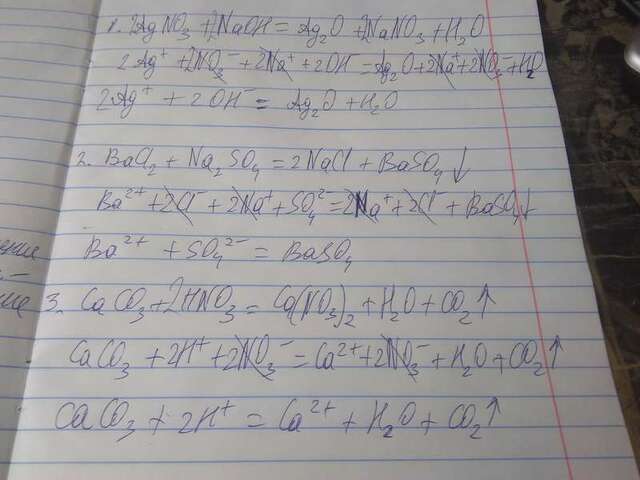 1. 2AgNO₃ + 2NaOH = Ag₂O + 2NaNO₃ + H₂O
2Ag⁺ + 2NO₃⁻ + 2Na⁺ + 2OH⁻ = Ag₂O + 2Na⁺ + 2NO₃⁻ + H₂O
2Ag⁺ + 2OH⁻ = Ag₂O + H₂O
2. BaCl₂ + Na₂SO₄ = 2NaCl + BaSO₄ ↓
Ba²⁺ + 2Cl⁻ + 2Na⁺ + SO₄²⁻ = 2Na⁺ + 2Cl⁻ + BaSO₄ ↓
Ba²⁺ + SO₄²⁻ = BaSO₄
3. CaCO₃ + 2HNO₃ = Ca(NO₃)₂ + H₂O + CO₂ ↑
CaCO₃ + 2H⁺ + 2NO₃⁻ = Ca²⁺ + 2NO₃⁻ + H₂O + CO₂ ↑
CaCO₃ + 2H⁺ = Ca²⁺ + H₂O + CO₂ ↑